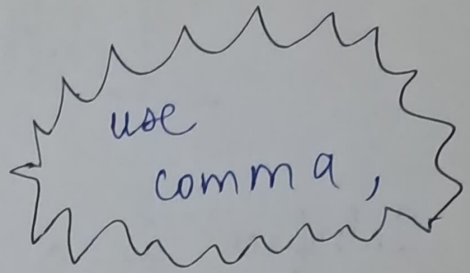 use
comma,